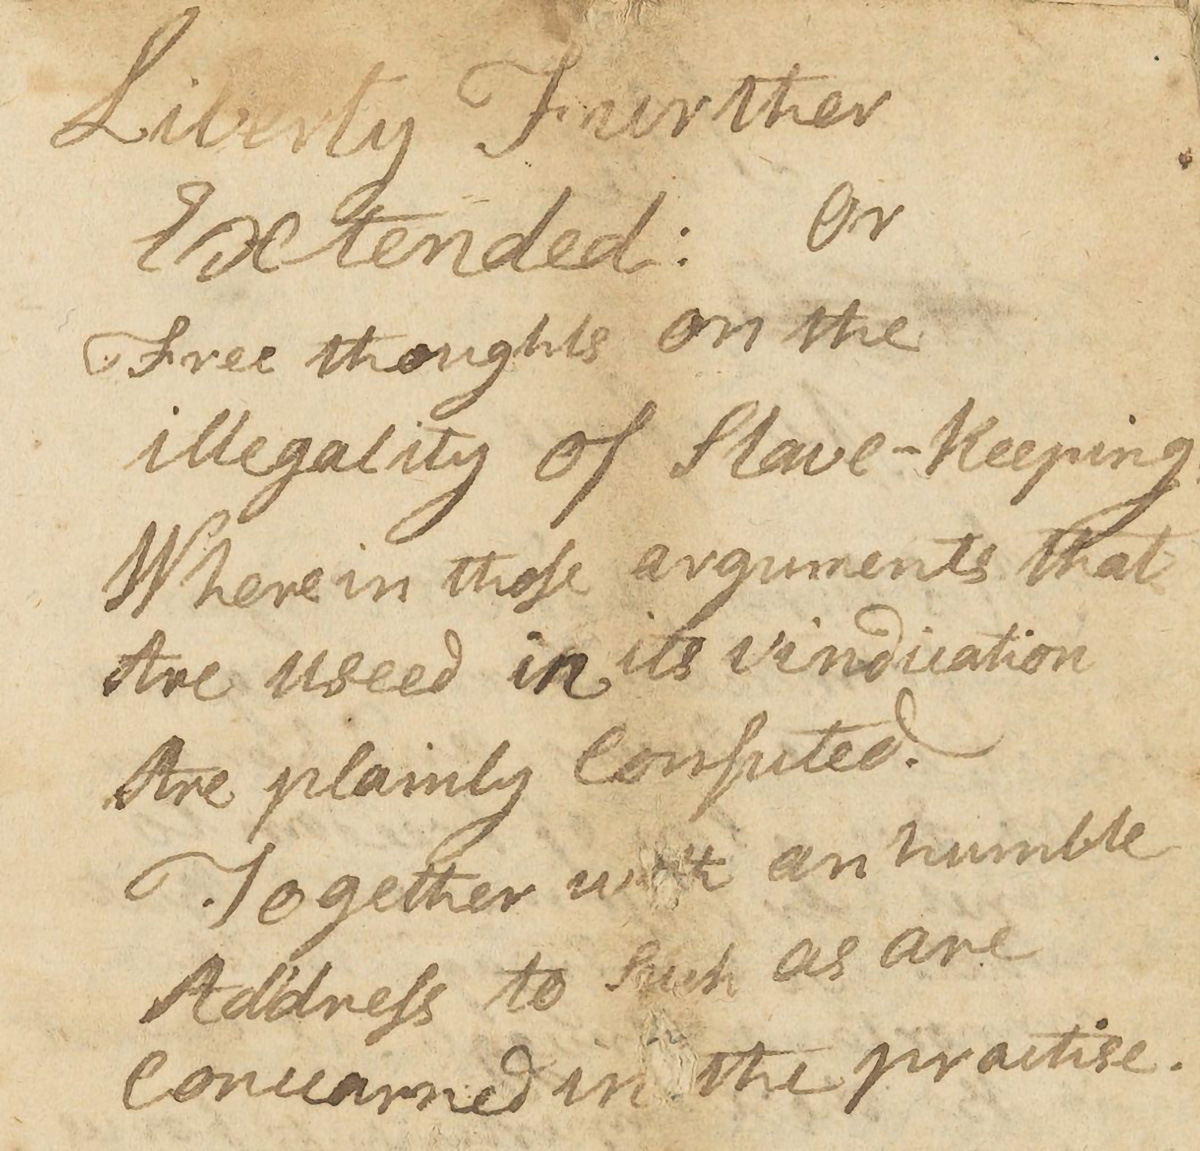 Liberty Further
Extended: Or
Free thoughts on the
illegality of Slave-keeping;
Wherein those arguments that
Are useed in its vindication
Are plainly confuted.
Together with an humble
Address to such as are
Concearned in the practise.